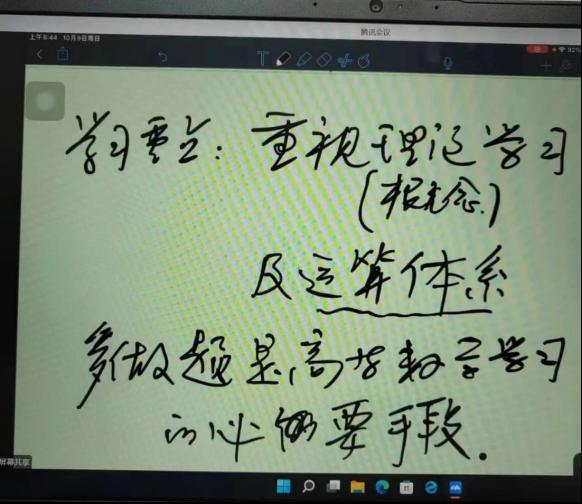 腾讯会议
上午8:44 10月9日周日
92%
学习要点：重视理论学习
(概念)
及运算体系
多做题是高等数学学习
的必要手段.
屏幕共享